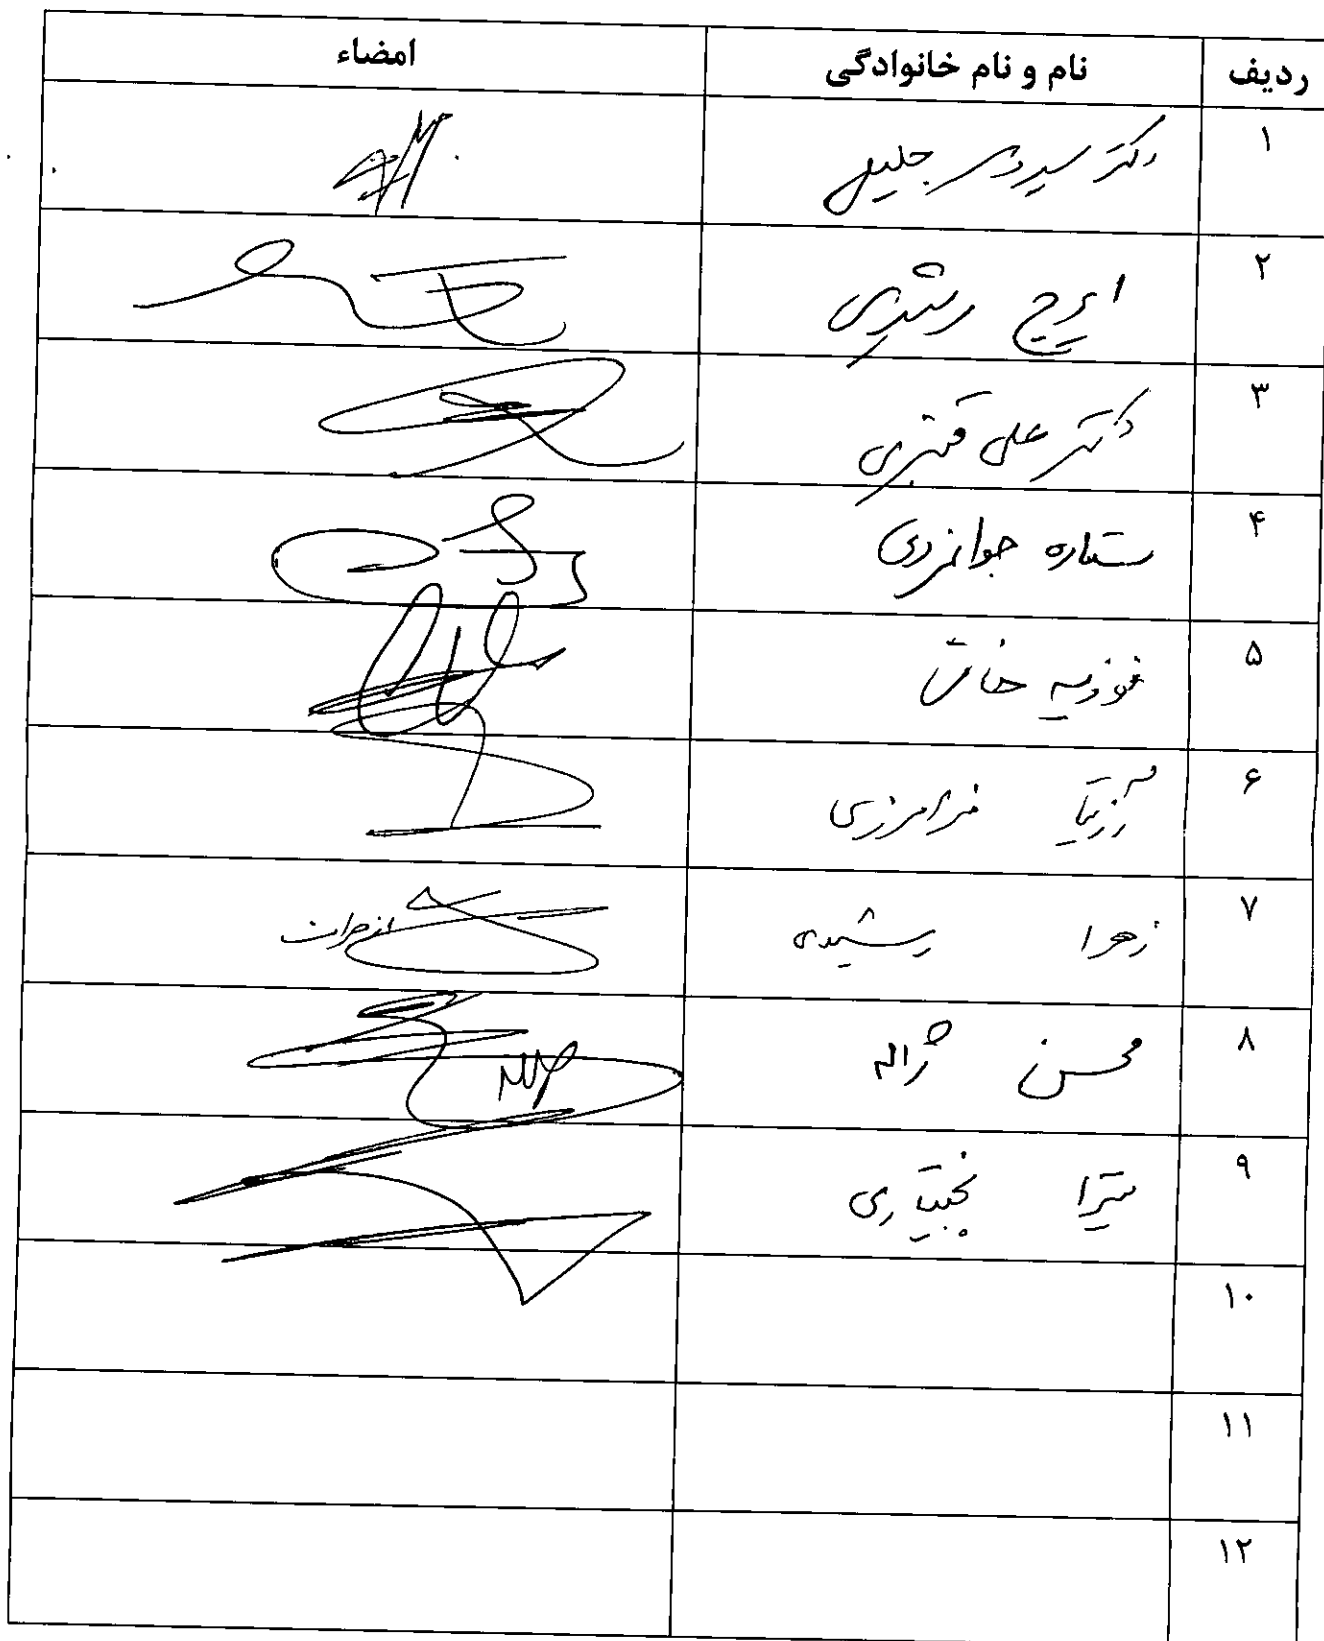 ردیف نام و نام خانوادگی امضاء
۱ دکتر جلیلی
۲ ایرج رشیدی
۳ دکتر علی قنبری
۴ ستاره جوانمردی
۵ فوزیه
۶ آزیتا فرامرزی
۷ زهرا رشیدی
۸ محسن ژاله
۹ میترا بختیاری
۱۰
۱۱
۱۲